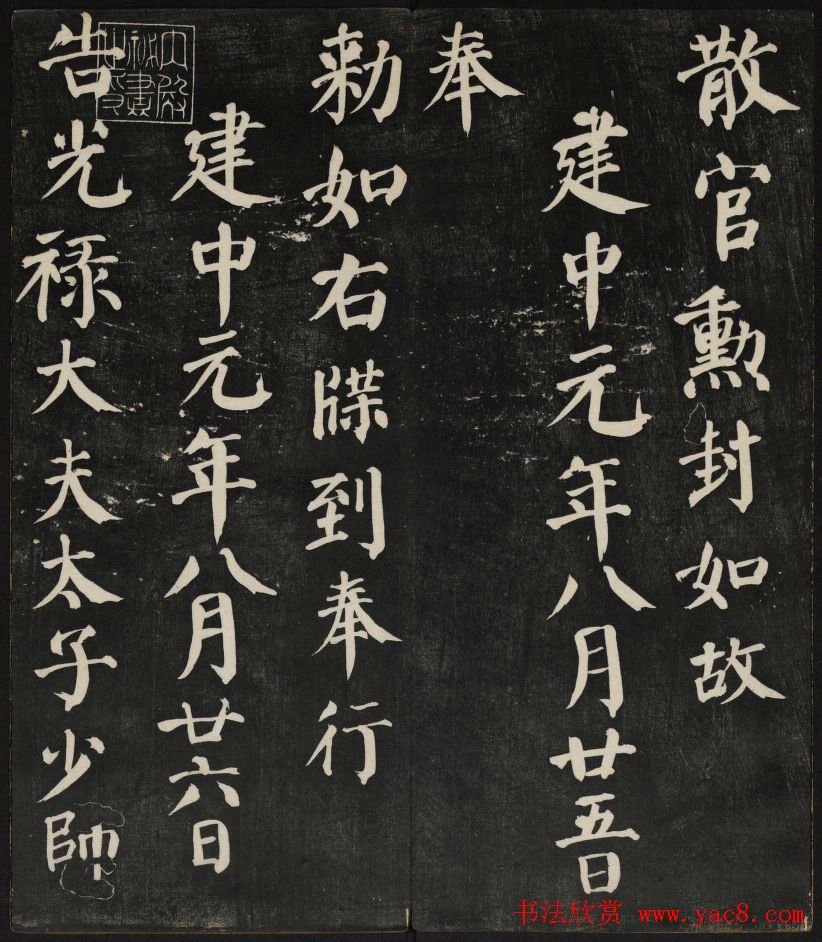 散官勲封如故
建中元年八月廿五日
奉
勅如右牒到奉行
建中元年八月廿六日
告光禄大夫太子少師
书法欣赏 www.yac8.com